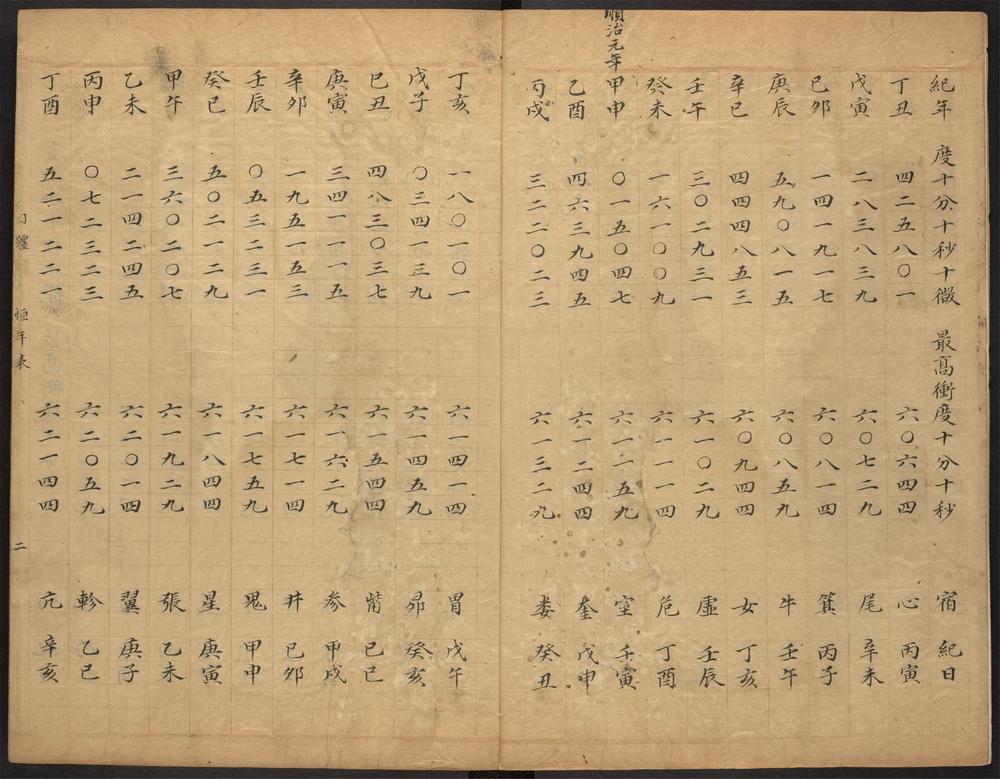 紀年 度十分十秒十微 最高衝度十分十秒 宿 紀日
丁丑 四二五八〇一 六〇六四四 心 丙寅
戊寅 二八三八三九 六〇七二九 尾 辛未
己卯 一四一九一七 六〇八一四 箕 丙子
庚辰 五九〇八一五 六〇八五九 牛 壬午
辛巳 四四四八五三 六〇九四四 女 丁亥
壬午 三〇二九三一 六一〇二九 虛 壬辰
癸未 一六一〇〇九 六一一一四 危 丁酉
順治元年
甲申 〇一五〇四七 六一一五九 室 壬寅
乙酉 四六三九四五 六一二四四 奎 戊申
丙戌 三二二〇二三 六一三二九 婁 癸丑
丁亥 一八〇一〇一 六一四一四 胃 戊午
戊子 〇三四一三九 六一四五九 昴 癸亥
己丑 四八三〇三七 六一五四四 觜 己巳
庚寅 三四一一一五 六一六二九 參 甲戌
辛卯 一九五一五三 六一七一四 井 己卯
壬辰 〇五三二三一 六一七五九 鬼 甲申
癸巳 五〇二一二九 六一八四四 星 庚寅
甲午 三六〇二〇七 六一九二九 張 乙未
乙未 二一四二四五 六二〇一四 翼 庚子
丙申 〇七二三二三 六二〇五九 軫 乙巳
丁酉 五二一二二一 六二一四四 亢 辛亥
日躔 恒年表 二